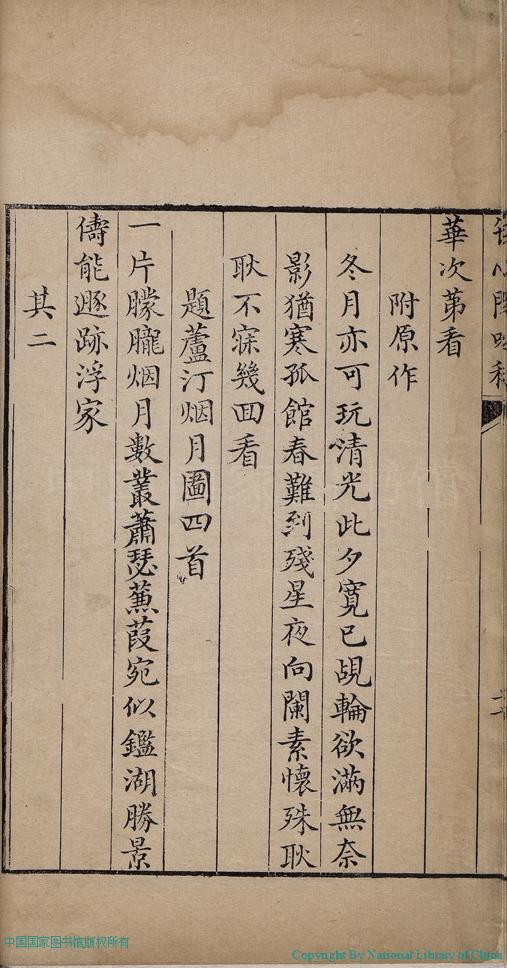 華次苐看
附原作
冬月亦可玩清光此夕寛已覘輪欲滿無奈
影猶寒孤館春難到殘星夜向闌素懷殊耿
耿不寐幾囬看
題蘆汀烟月圖四首
一片朦朧烟月數叢蕭瑟蒹葭宛似鑑湖勝景
儔能遯跡浮家
其二
中国国家图书馆版权所有
Copyright By National Library of China